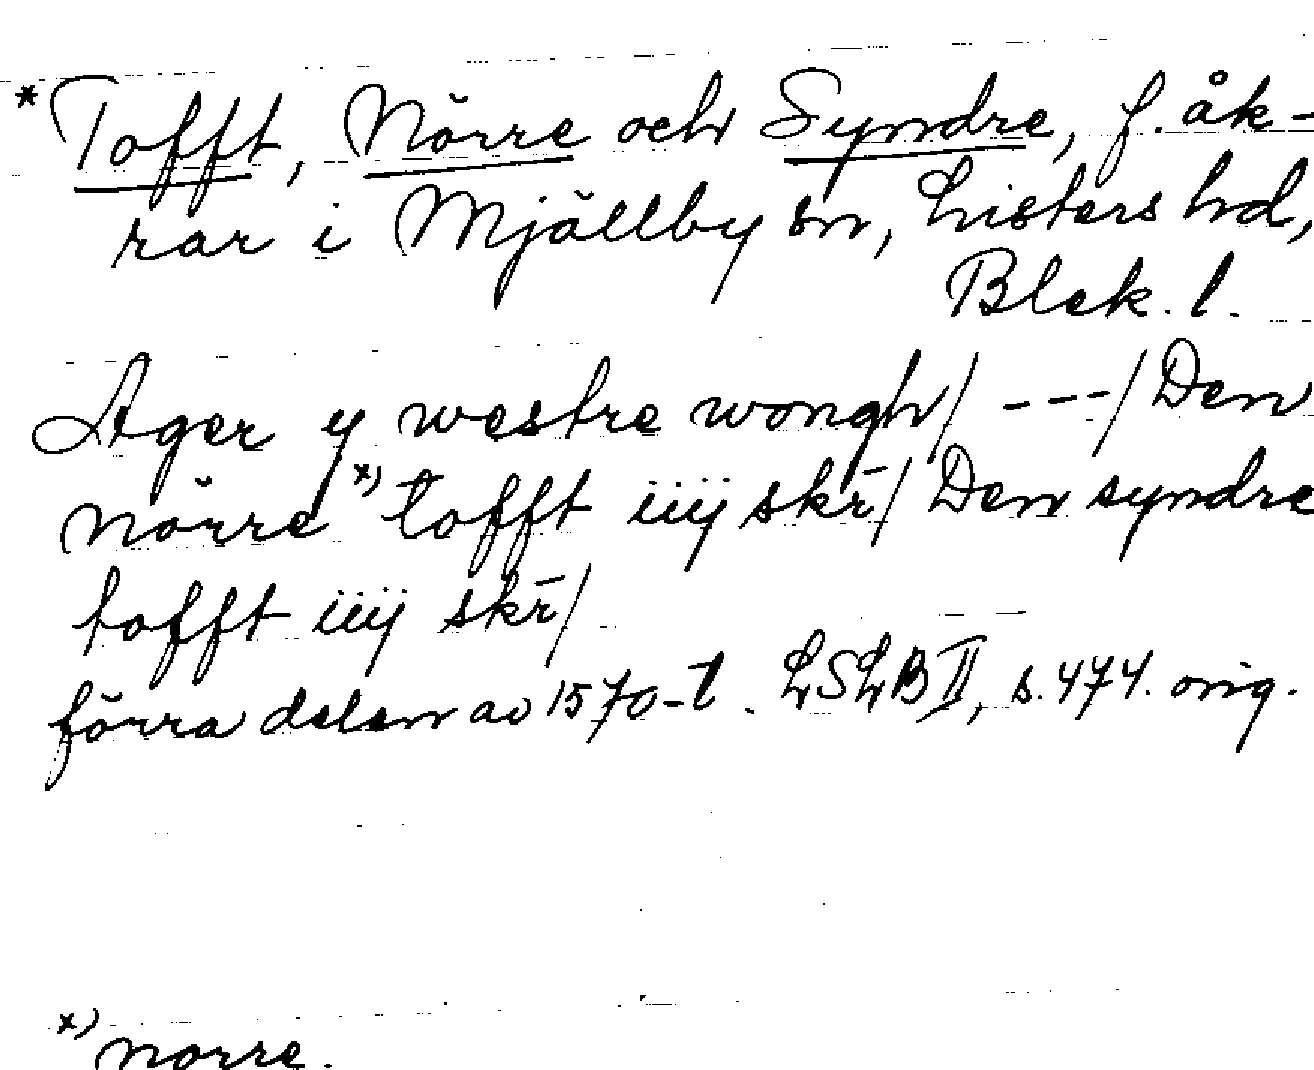 * Tofft, Nörre och Syndre, f. åk-
rar i Mjällby sn, Listers hd,
Blek. l.
Ager y westre wongh/ ---/ Den
nörre x) tofft iiij skr̄/ Den syndre
tofft iiij skr̄/
förra delen av 1570-t. LSLB II, s. 474. orig.
x) norre.